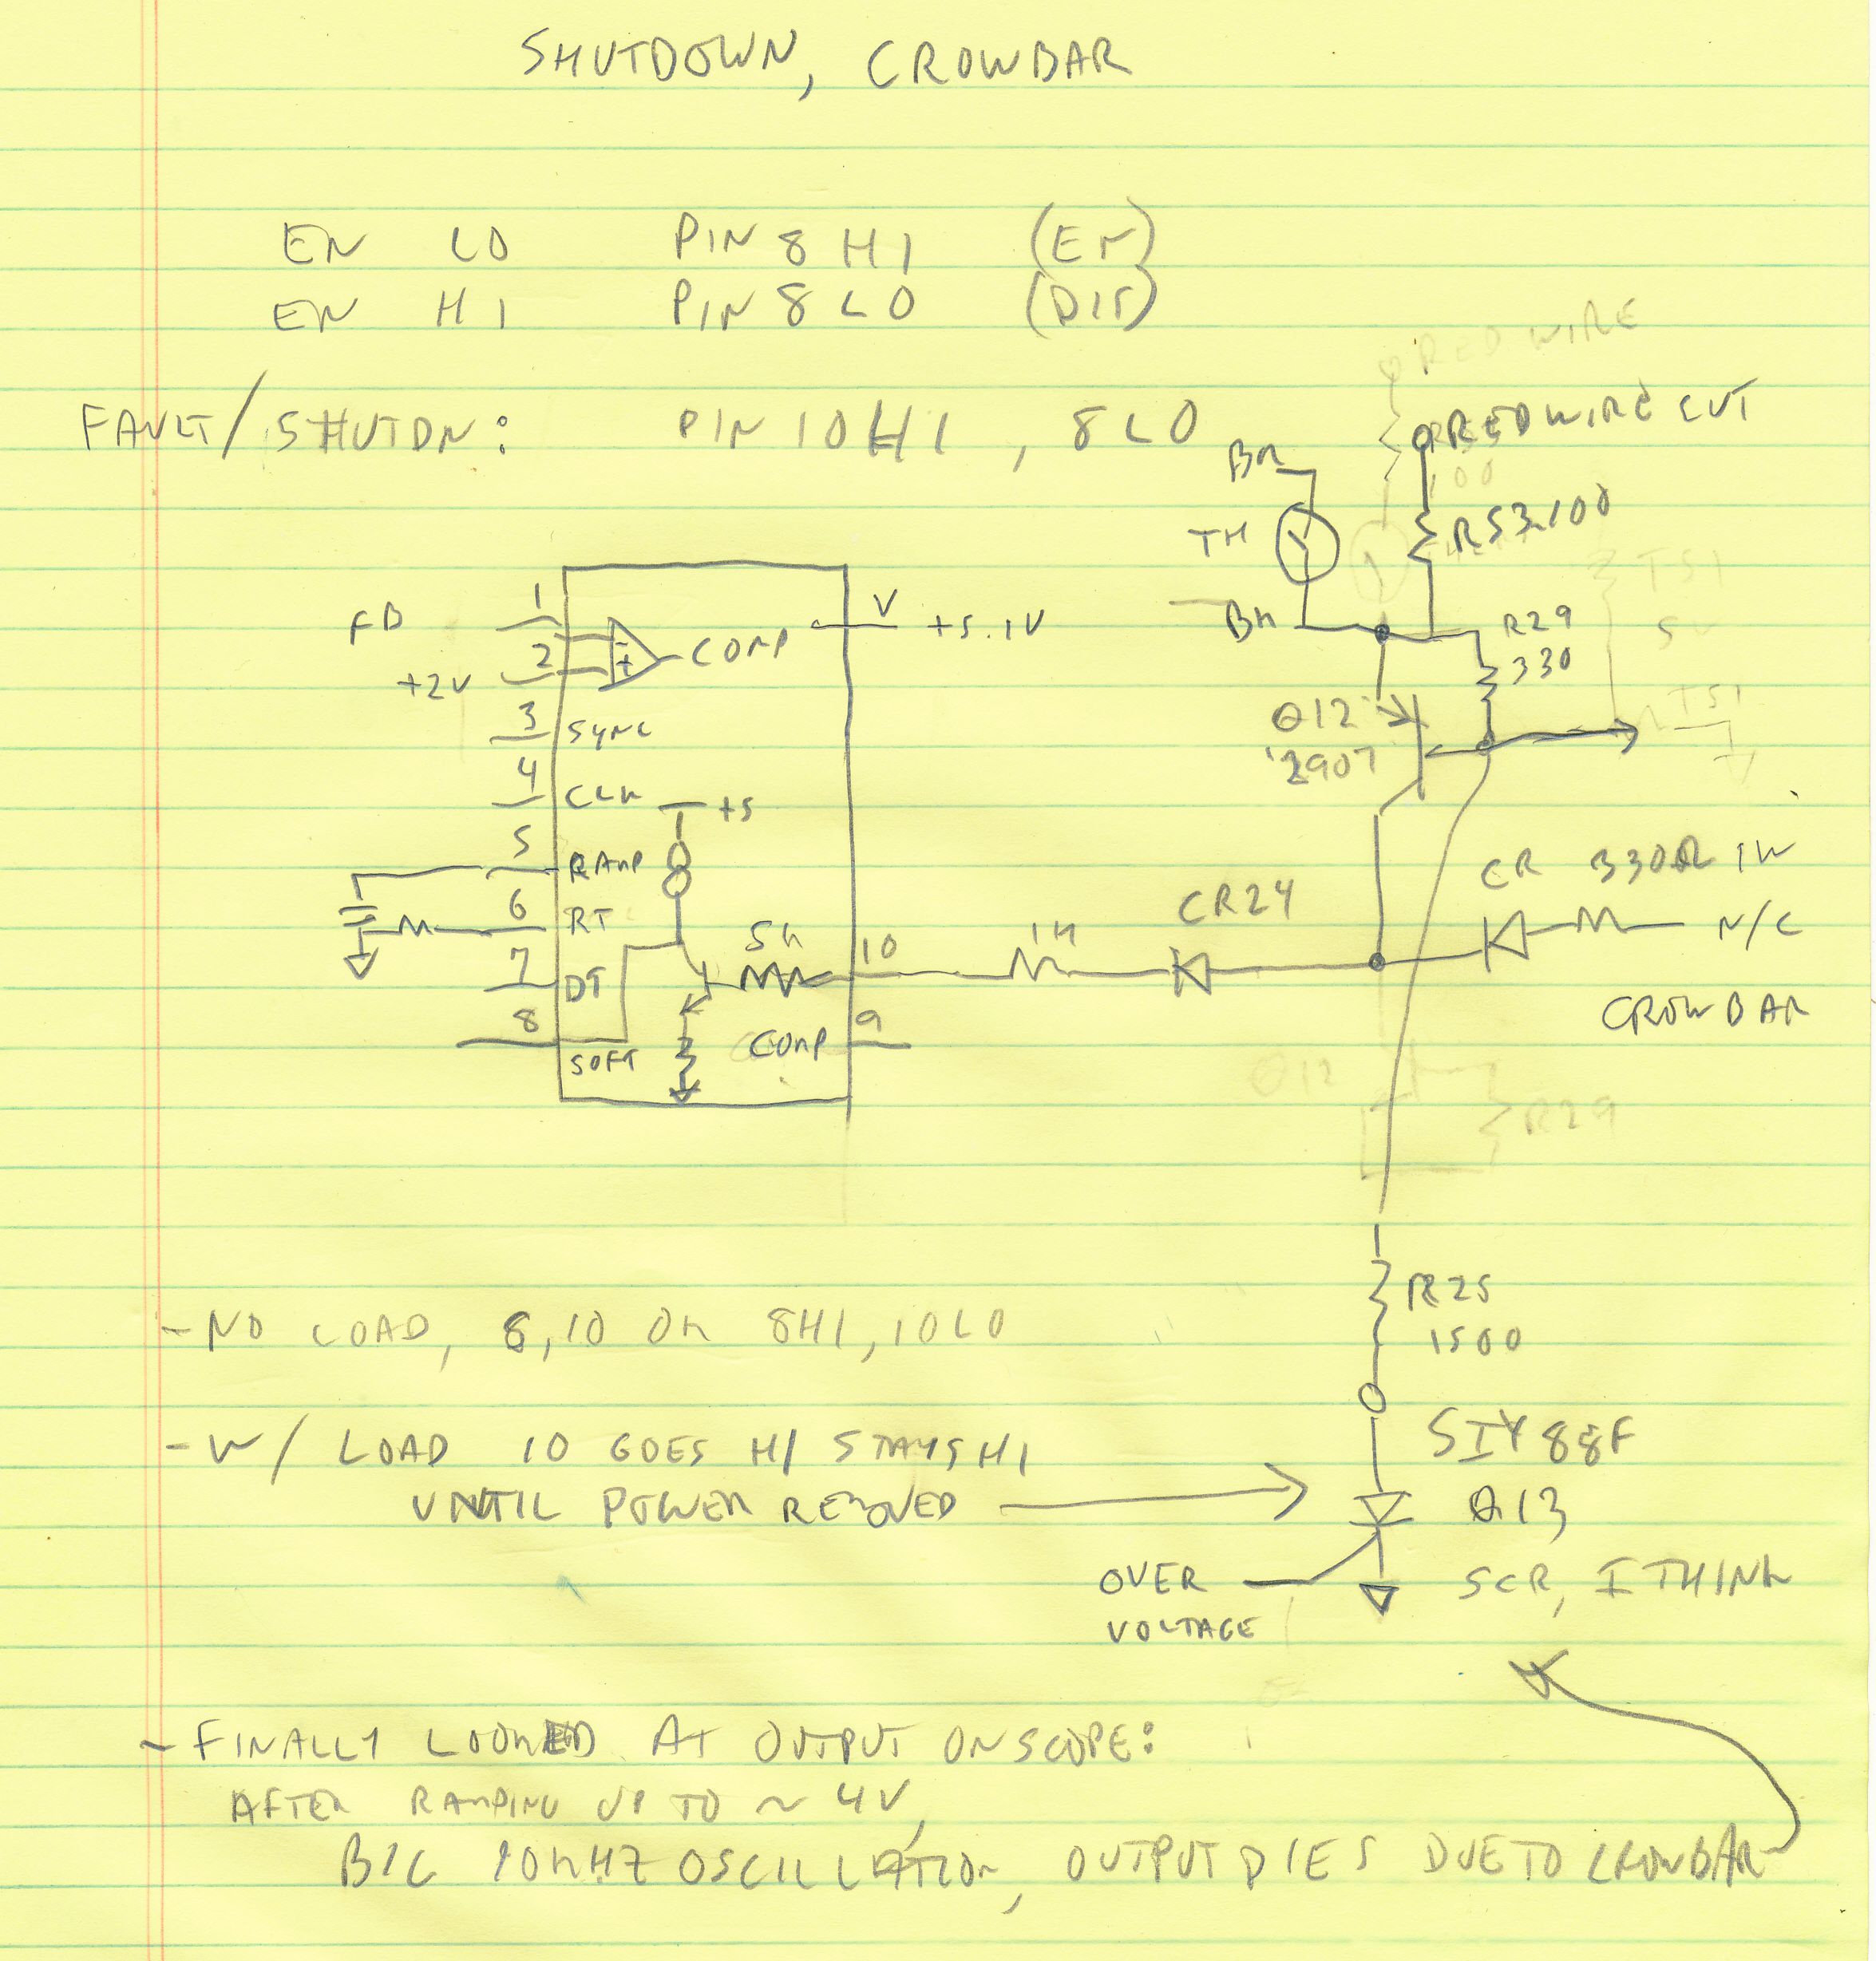 SHUTDOWN, CROWBAR
EN LO PIN 8 HI (EN)
EN HI PIN 8 LO (DIS)
RED WIRE
FAULT/SHUTDN: PIN 10 HI, 8 LO
RED WIRE CUT
BK
100
TH
R53 100
TS1
BK
R29
330
5
1
FB
2
+2V
- +
COMP
V
+5.1V
3
SYNC
4
CLK
+5
5
RAMP
6
RT
7
DT
8
SOFT
5K
10
9
COMP
Q12
2907
TS1
1K
CR24
CR 330Ω 1W
N/C
CROWBAR
Q12
R29
R25
1500
- NO LOAD, 8,10 OK 8HI, 10LO
- W/ LOAD 10 GOES HI STAYS HI
UNTIL POWER REMOVED
SIY88F
Q13
SCR, I THINK
OVER
VOLTAGE
- FINALLY LOOKED AT OUTPUT ON SCOPE:
AFTER RAMPING UP TO ~ 4V,
BIG 10KHZ OSCILLATION, OUTPUT DIES DUE TO CROWBAR